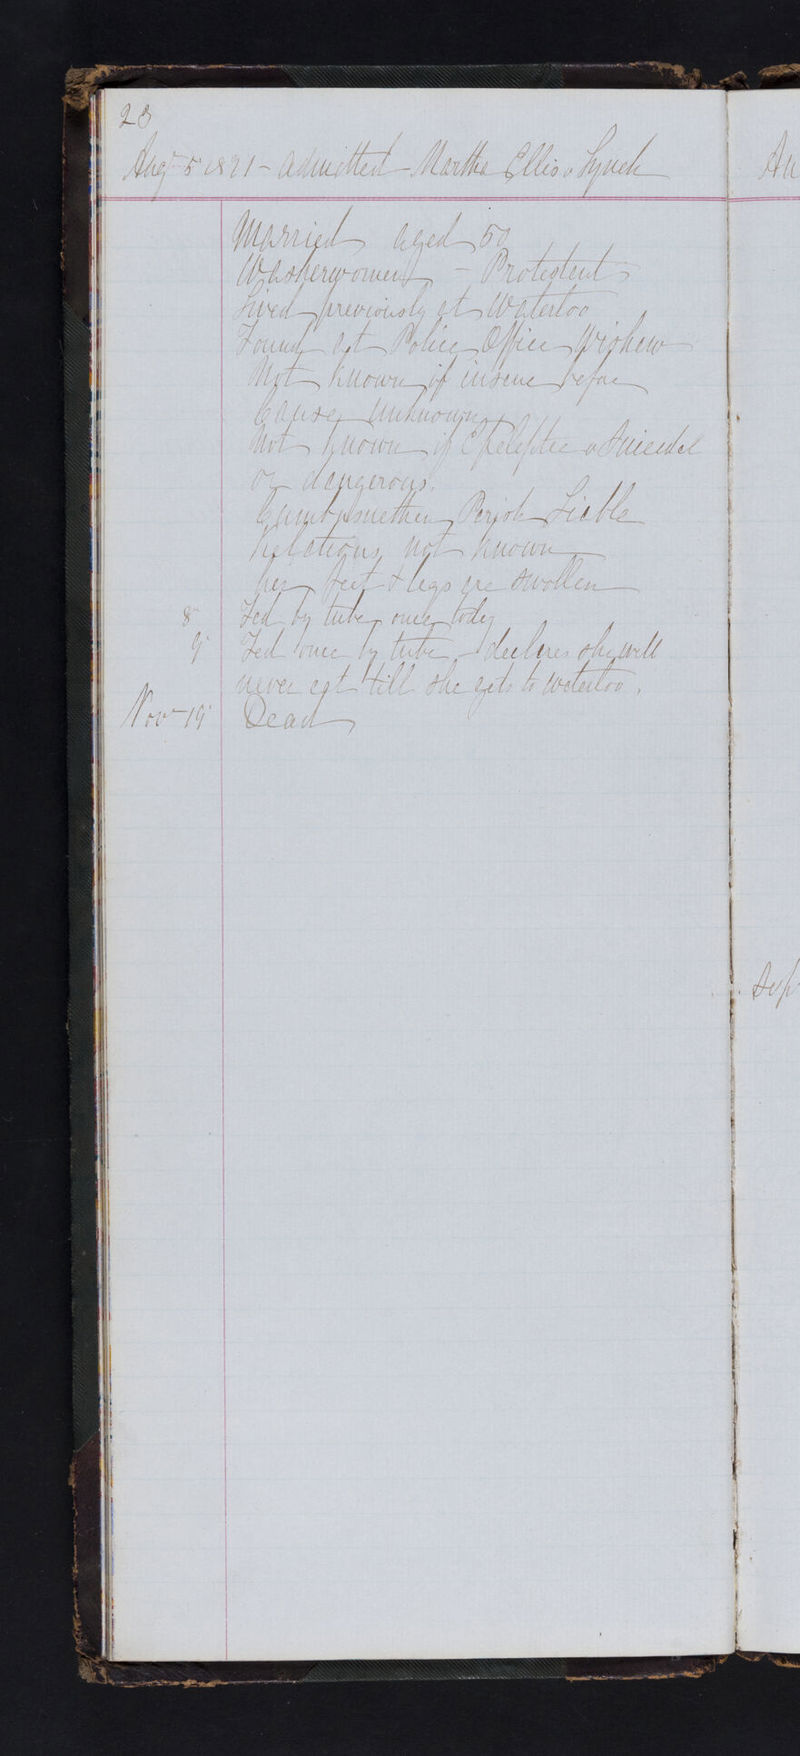 23
Augt 5 1881 - Admitted - Martha Ellis o Lynch
Married aged 50
Washerwoman - Protestant
Lived previously at Waterloo
Found at Police Office Wishaw
Not known if insane before
Cause unknown
Not known if Epileptic o Suicidal
or dangerous.
Cambusnethan Parish Liable
Relations not known
her feet & legs are swollen
8 Fed by tube once today
9 Fed once by tube - declares she will
never eat till she gets to Waterloo.
Nov 19 Dead
Au
Sep